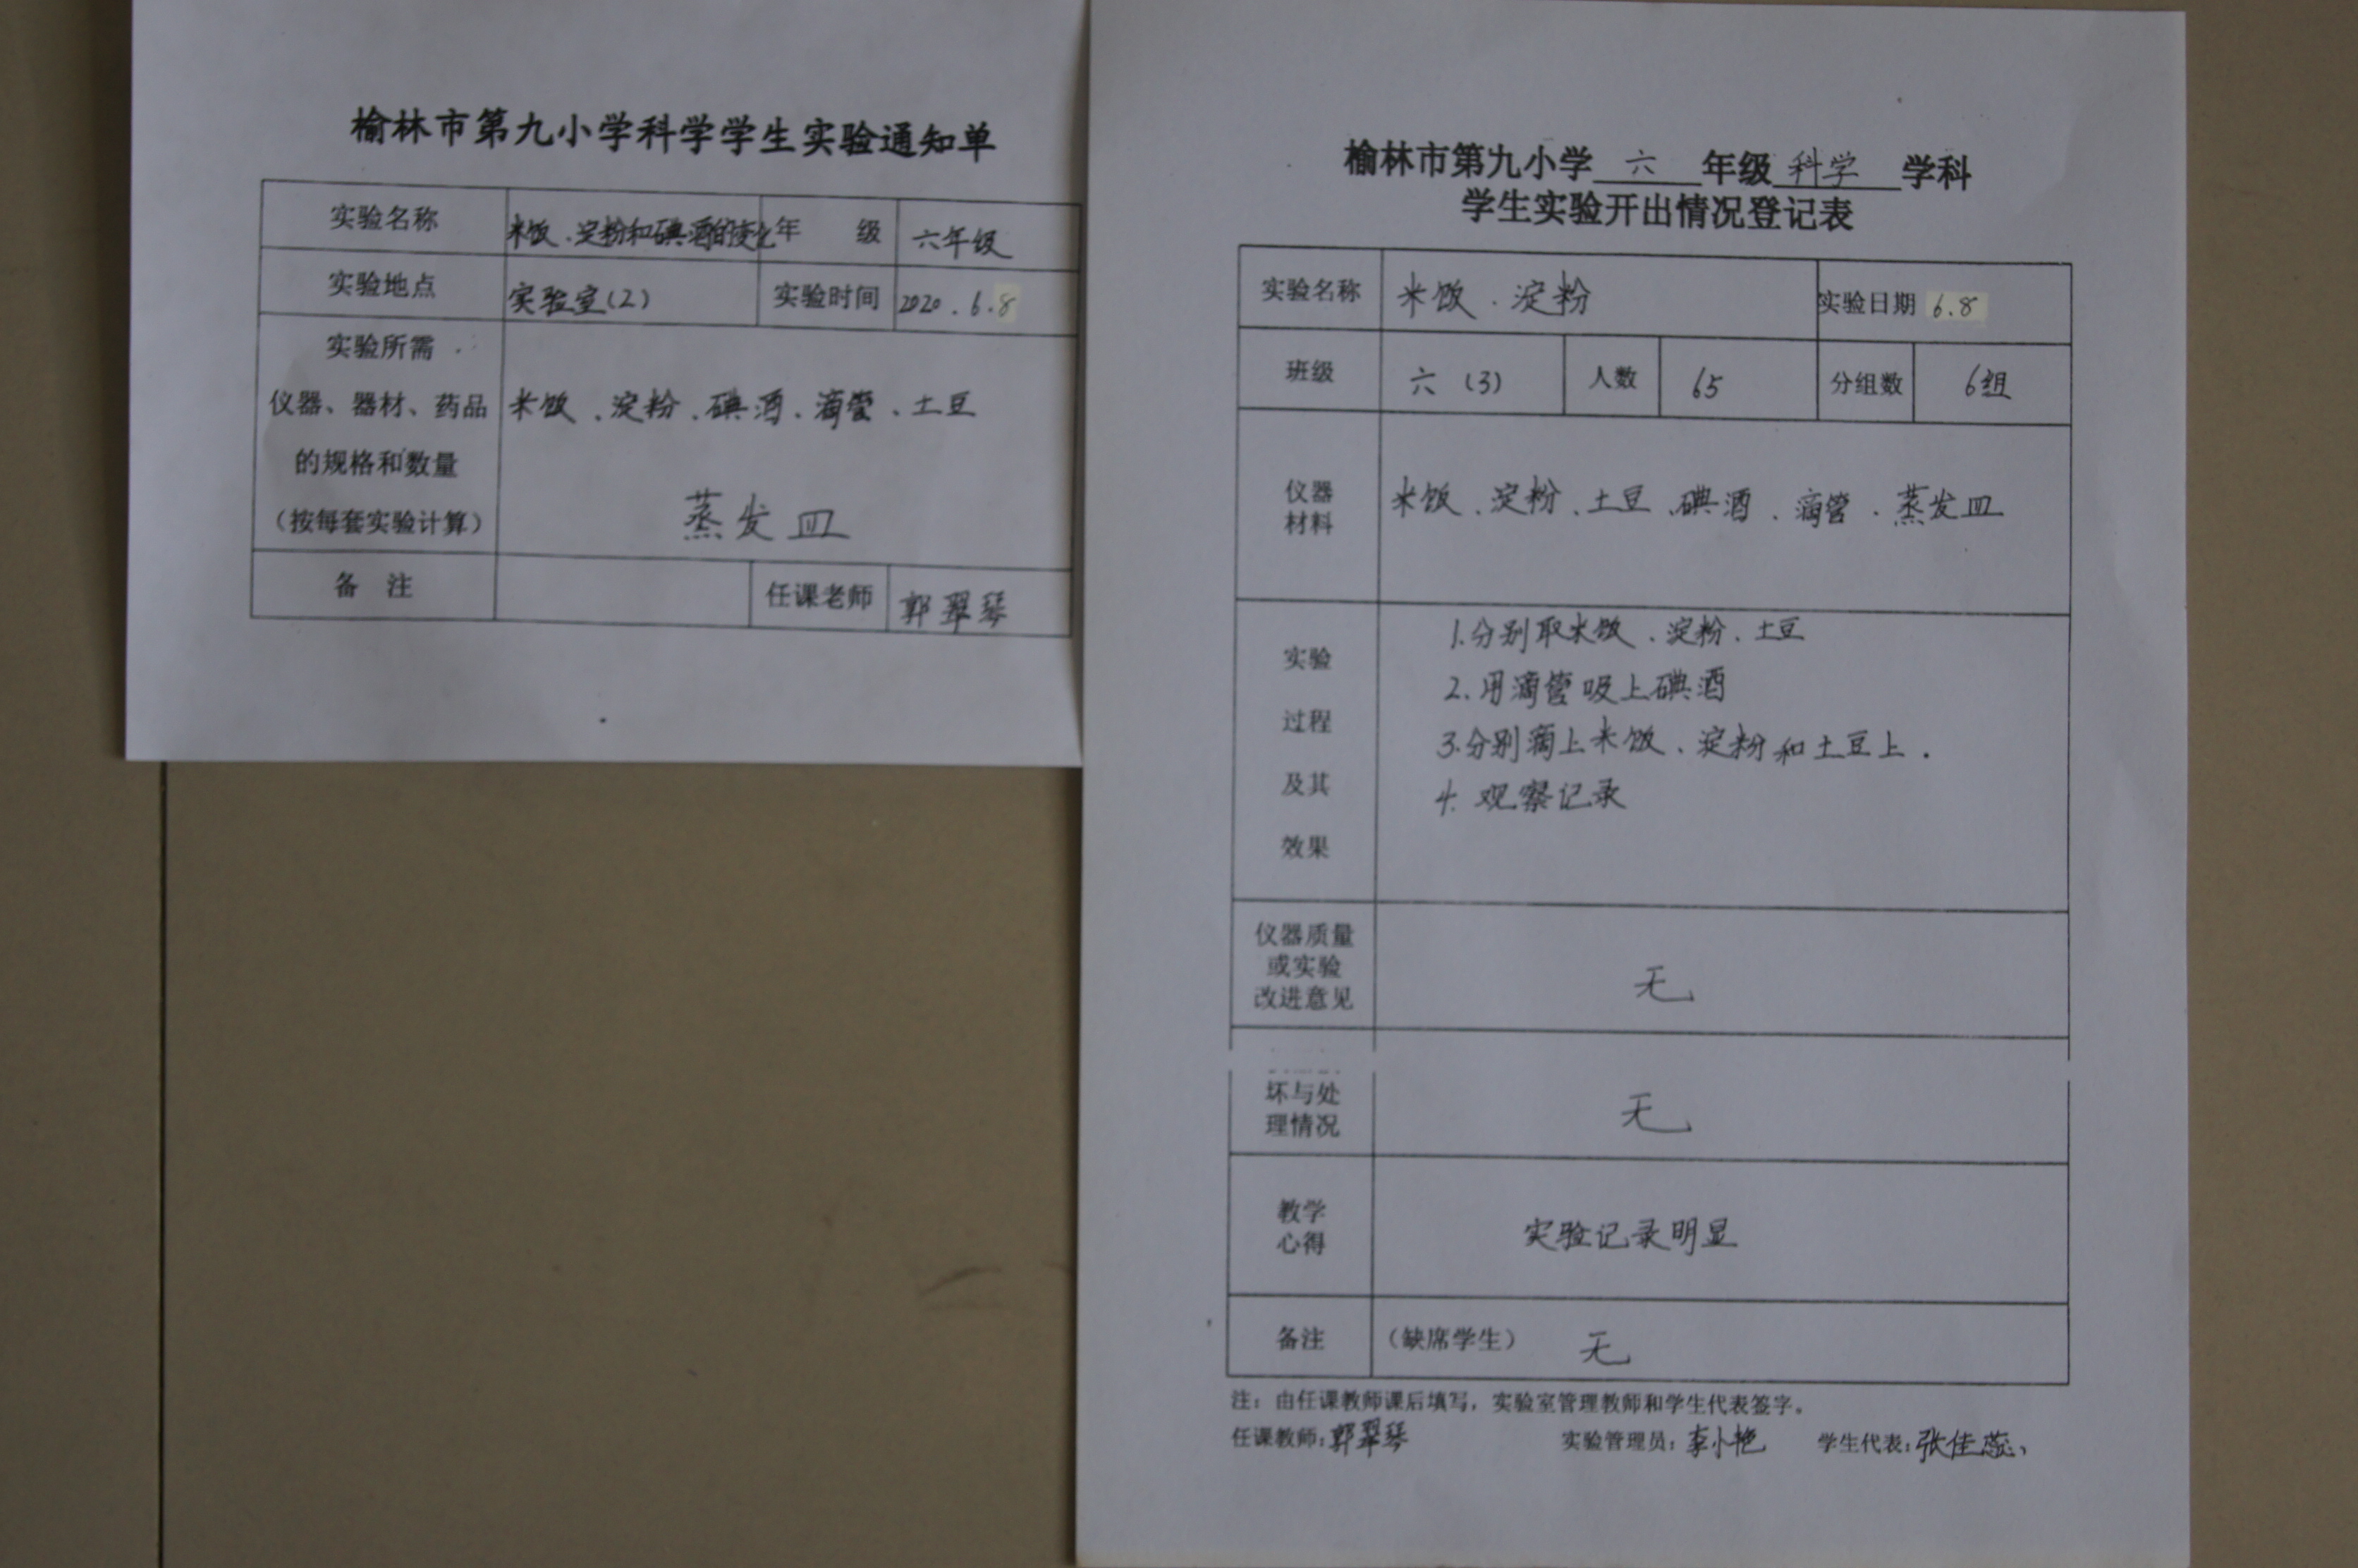 榆林市第九小学科学学生实验通知单
实验名称 米饭、淀粉和碘酒的变化 年 级 六年级
实验地点 实验室(2) 实验时间 2020.6.8
实验所需
仪器、器材、药品
的规格和数量
（按每套实验计算）
米饭、淀粉、碘酒、滴管、土豆
蒸发皿
备 注 任课老师 郭翠琴
榆林市第九小学 六 年级 科学 学科
学生实验开出情况登记表
实验名称 米饭、淀粉 实验日期 6.8
班级 六(3) 人数 65 分组数 6组
仪器
材料
米饭、淀粉、土豆、碘酒、滴管、蒸发皿
实验
过程
及其
效果
1.分别取米饭、淀粉、土豆
2.用滴管吸上碘酒
3.分别滴上米饭、淀粉和土豆上.
4.观察记录
仪器质量
或实验
改进意见
无
坏与处
理情况
无
教学
心得
实验记录明显
备注 （缺席学生） 无
注：由任课教师课后填写，实验室管理教师和学生代表签字。
任课教师:郭翠琴 实验管理员:李小艳 学生代表:张佳蕊